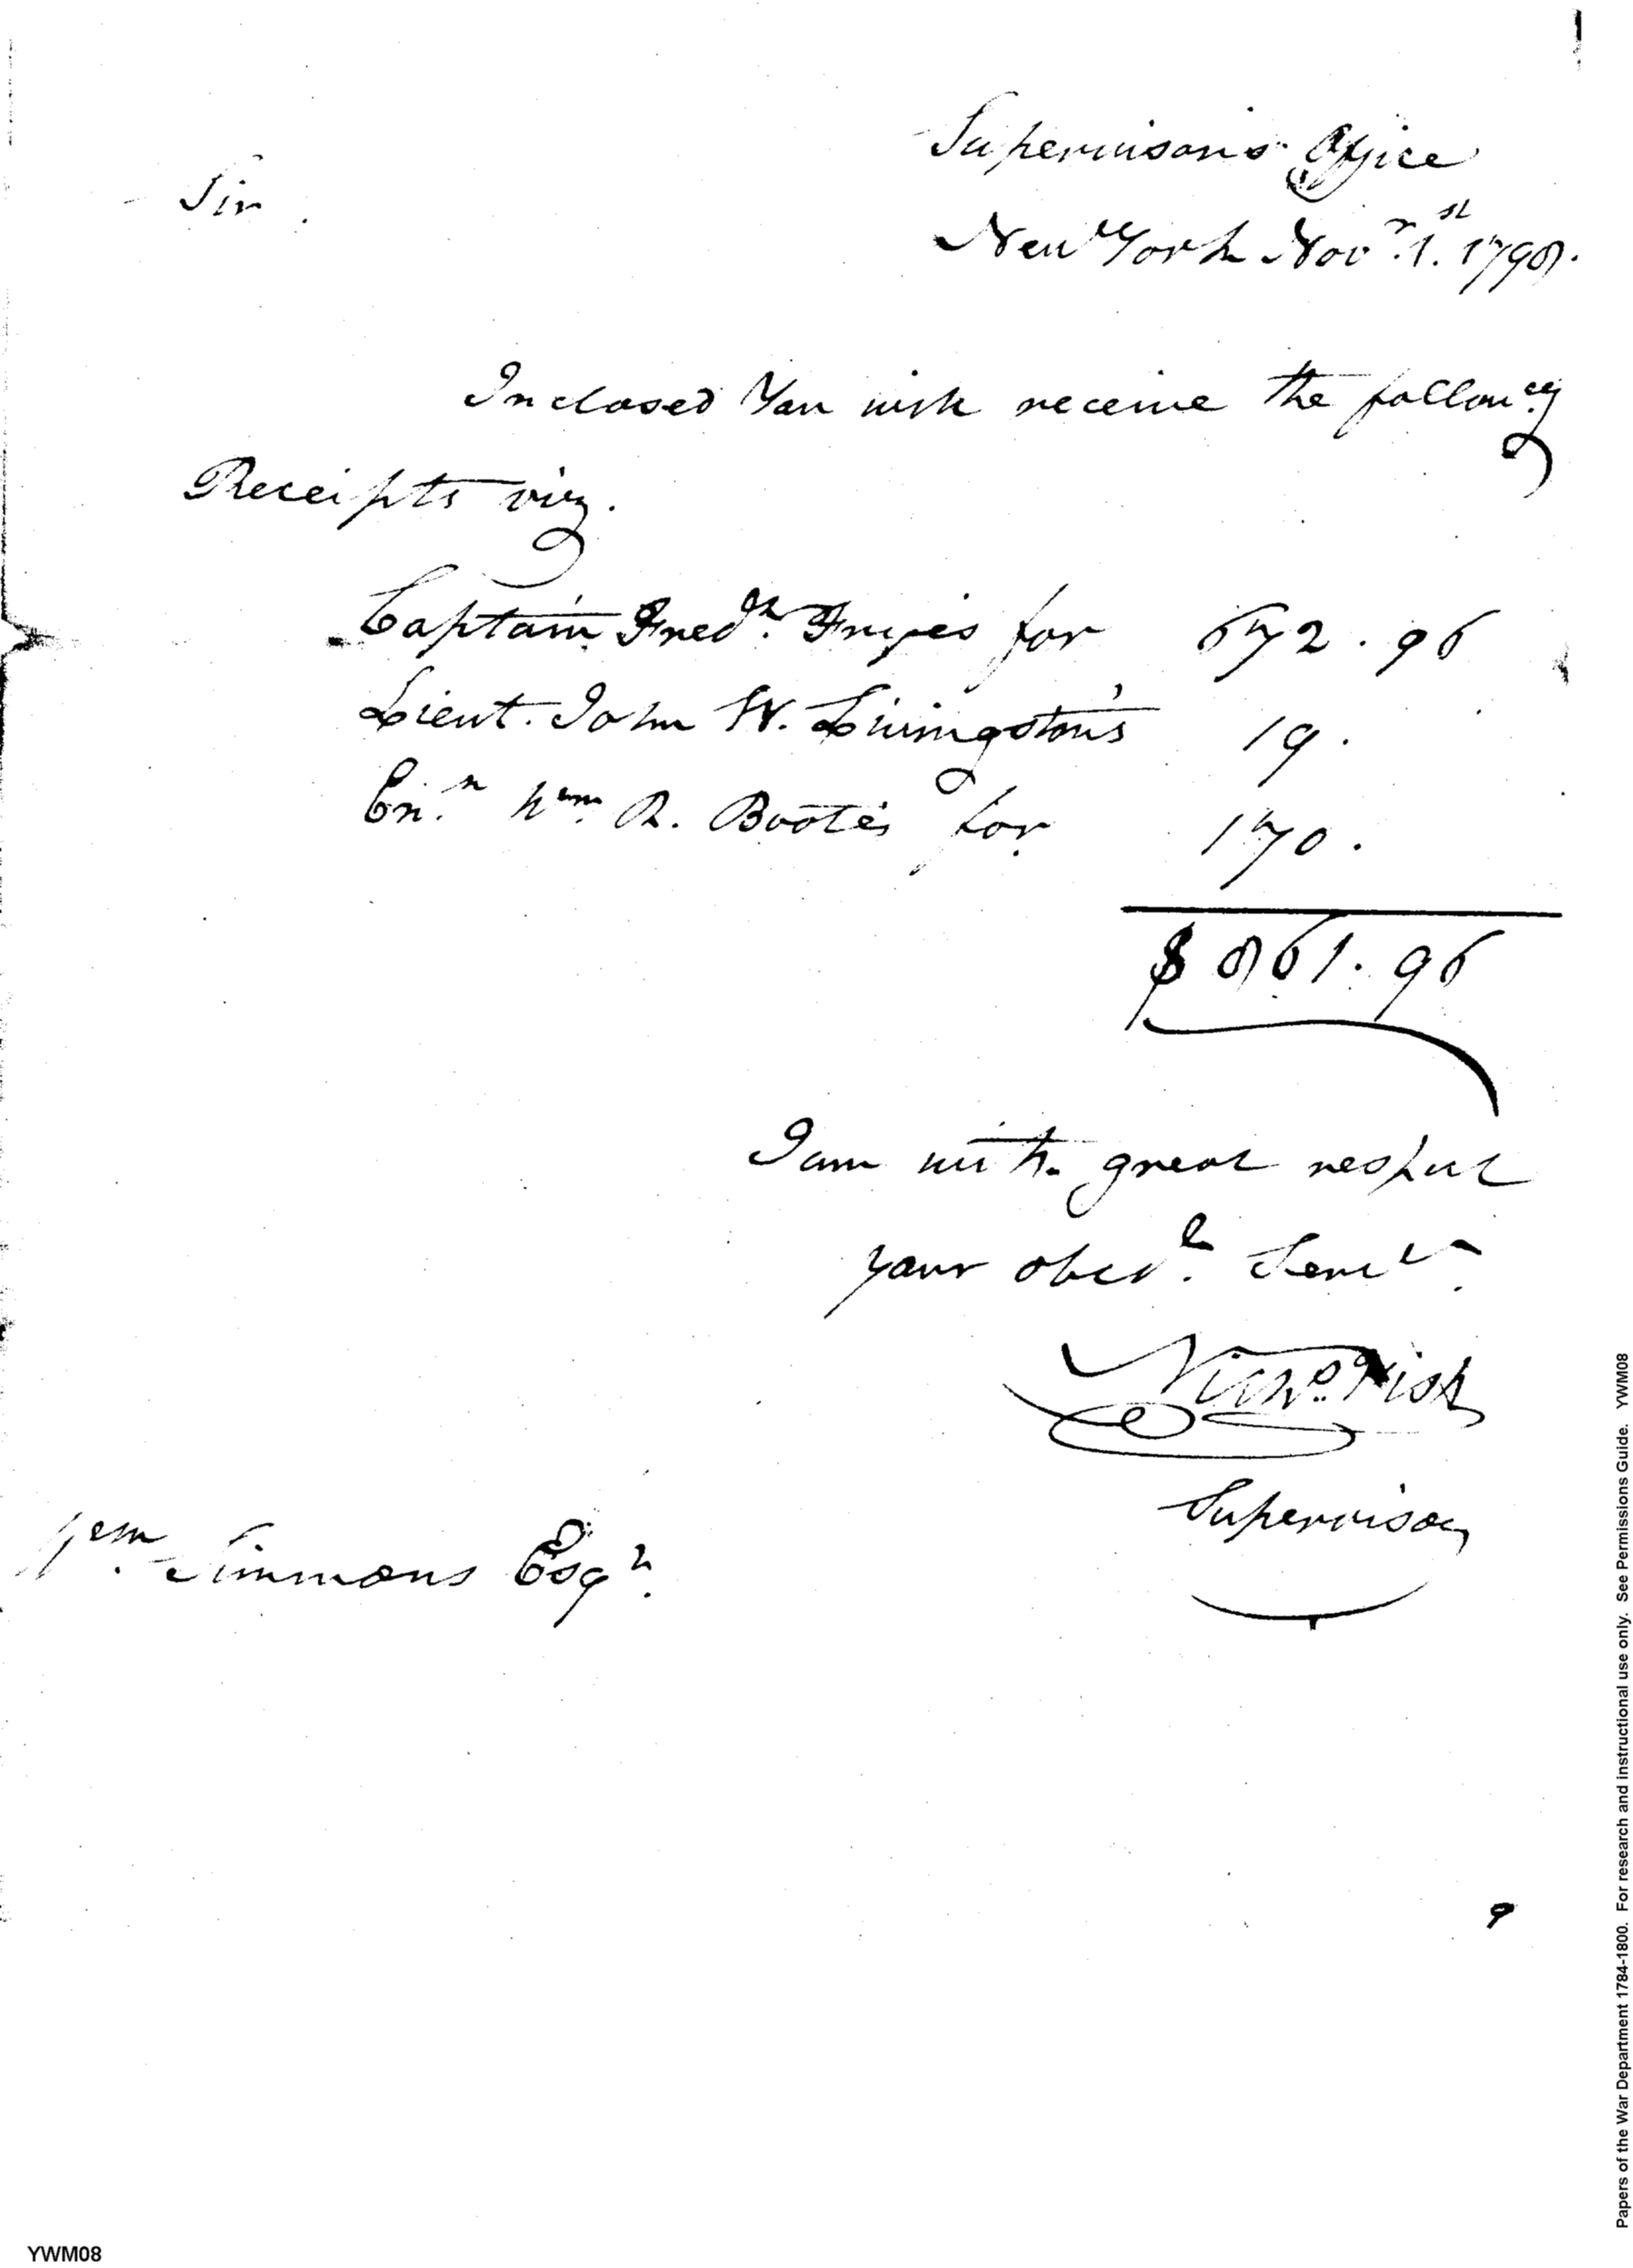 Supervisor's Office
New York Nov.r 1.st 1798.
Sir.
Inclosed You will receive the follow.g
Receipts viz.
Captain Fred.k Frye's for 672.96
Lieut. John W. Livingston's 19.
En.n Wm. R. Boote's for 170.
$ 861.96
I am with great respect
your obed.t Serv.t
Nich.s Fish
Supervisor
Wm. Simmons Esq.r
9
YWM08
Papers of the War Department 1784-1800. For research and instructional use only. See Permissions Guide. YWM08